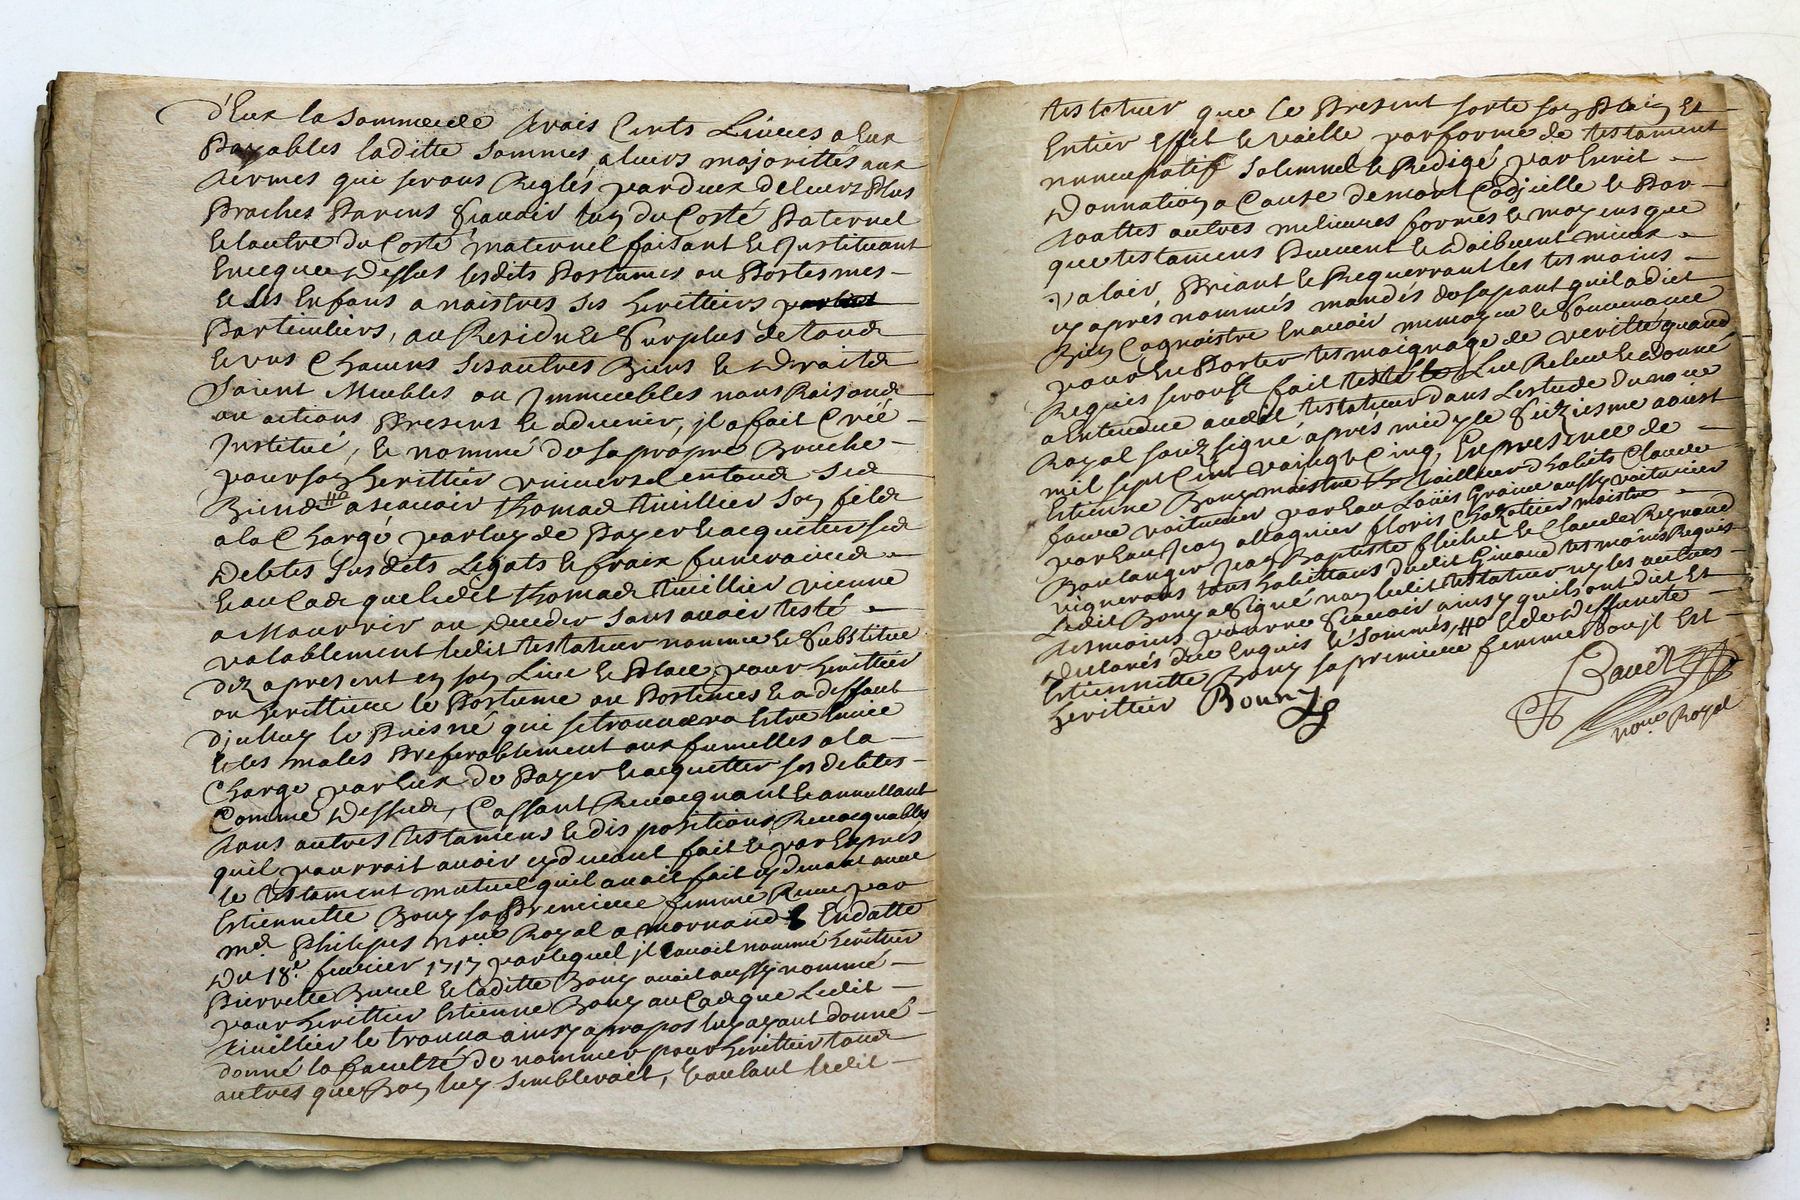 d'Eux la Somme de trois Cents Livres a Eux
Payables laditte Somme a leurs majorittés aux
termes qui serons Reglés par deux de leurs Plus
Proches Parens scavoir luy du Costé Paternel
et lautre du Costé maternel faisant et Jnstituant
Dessus lesdits Postumes ou Postesmes
et les Enfans a naistres ses heritiers
Particuliers, au Residu et Surplus de tous
et uns Chacuns ses autres Biens et Droits
soient Meubles ou Jmmeubles noms Raisons
ou actions Presens et advenir, jl a fait Créé
Jnstitué, et nommé de sa propre Bouche
pour son heritier universel en tous ses
Biens a scavoir thomas thuillier son fils
a la Charge par luy de Payer et acquitter ses
Debtes susdits Legats et fraix funeraires
et au Cas que ledit thomas thuillier vienne
a Mourrir ou deceder sans avoir testé
valablement ledit testateur nomme et substitue
diz a present en son Lieu et Place pour heritier
ou herittiere le Postume ou Postumes et a deffaut
Djceluy le Puisné qui se trouvera Estre
et les males Preferablement aux fumelles a la
Charge par Eux de Payer et acquitter ses debtes
Comme Dessus, Cassant Revocquant et annullant
tous autres testamens et dispositions Revocquables
quil pourroit avoir cy devant fait et par Exprés
le testament mutuel quil avoit fait cy devant avec
Estiennette Bony sa Premiere femme Receu par
me. Philipes noere. Royal a mornand En datte
Du 18e. fevrier 1717 par lequel jl avoit nommé heritier
Pierrette Burel et laditte Bony avoit aussy nommé
pour heritier Estienne Bony au Cas que Ledit
thuillier le trouva ainsy a propos luy ayant donné
donné la faculté de nommer pour heritier tous
autres que Bon luy sembleroit, Voulant ledit
testateur que le Present sorte son Plain et
Entier Effet et vaille par forme de testament
nuncupatif solemnel et Redigé par Escrit
Donnation a Cause de mort Codjcille et Par
touttes autres melieures formes et moyens que
que testamens Peuvent et Doibvent mieux
valoir Priant et Requerrant les tesmoins
cy aprés nommés mandés de sa part quil a dit
Bien Cognoistre En avoir memoyre et souvenance
pour En Porter tesmoignage de verité quand
Requis seront fait Leu Releu et donné
a Entendre audit testateur dans Lestude du noere
Royal soub signé aprés midy le seiziesme aoust
mil sept Cent vaingt Cinq, En presence de
Estienne Bony maistre tailleur dhabits Claude
faure voiturier par Eau Loüis Graive aussy voiturier
par Eau Jean allagnier floris Chazotier maistre
Boulanger Jean Baptiste flichet et Claude Reynaud
vignerons tous habittans dudit Givord tesmoins Requis
Ledit Bony a signé non ledit testateur ny les autres
tesmoins pour ne scavoir ainsy quils ont dit et
declarés de ce Enquis et sommés, et de deffuncte
Estiennette Bony sa premiere femme dont jl Est
heritier Bouny
noere. Royal